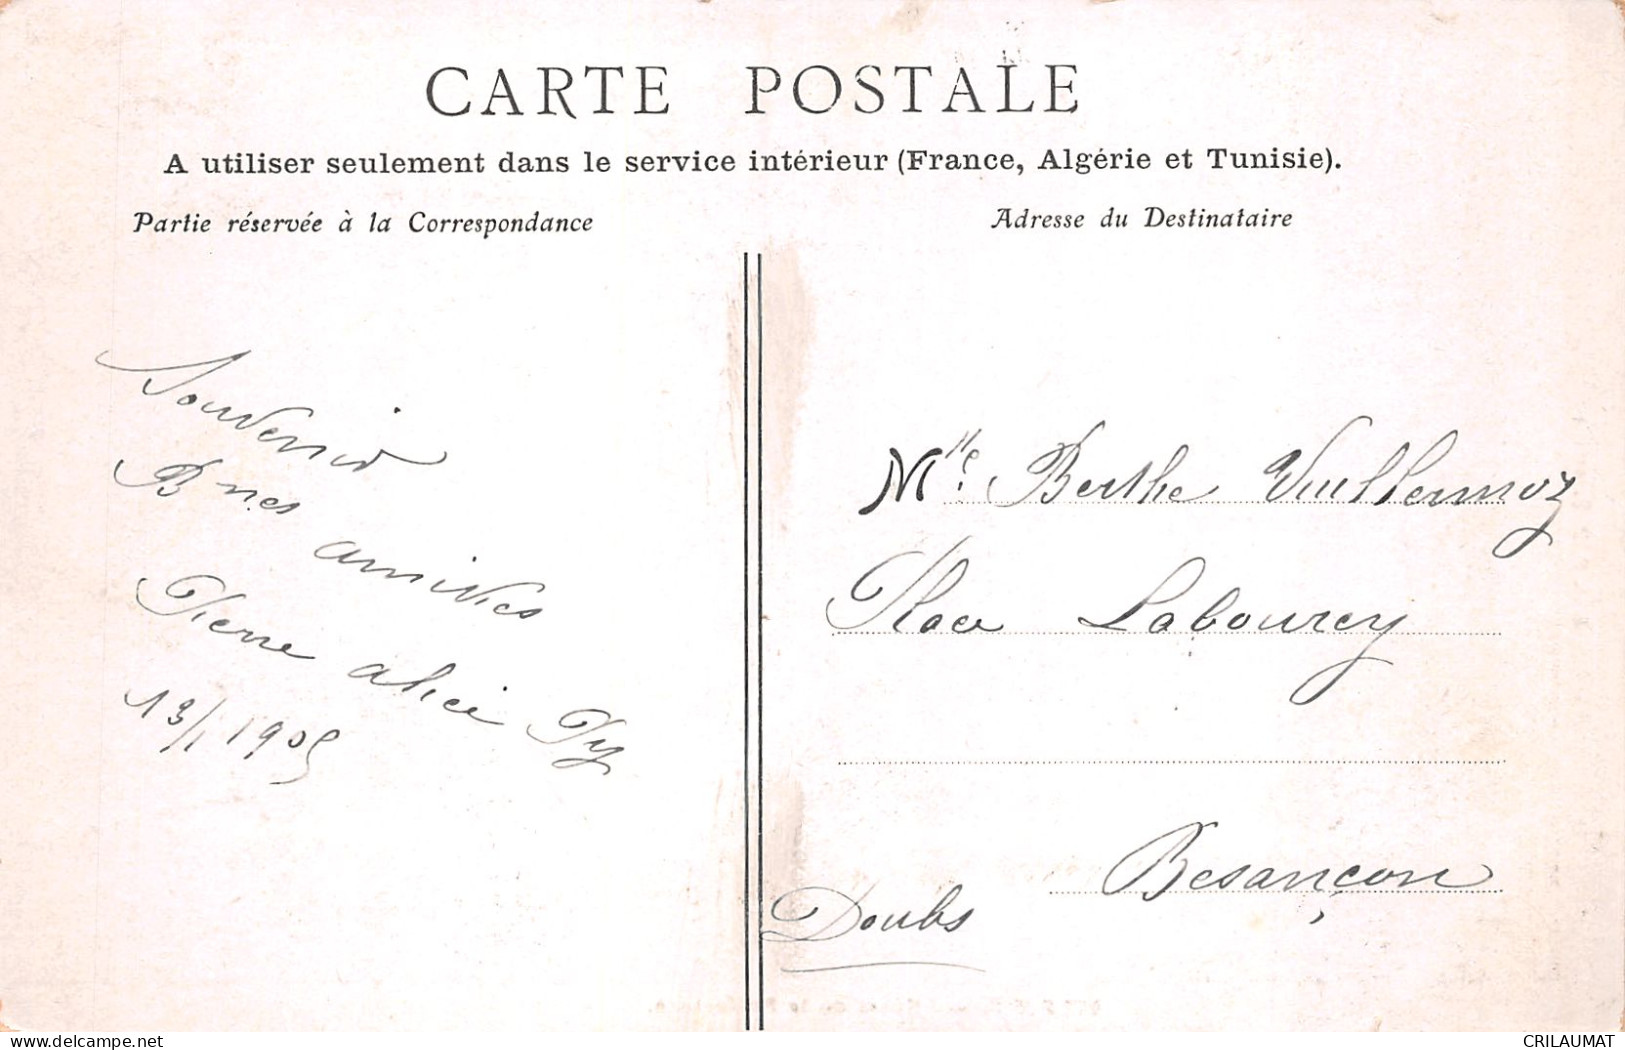 CARTE POSTALE
A utiliser seulement dans le service intérieur (France, Algérie et Tunisie).
Partie réservée à la Correspondance
Adresse du Destinataire
Souvenir
Bnes
amitiés
Pierre alice Py
13/1 1905
Mlle Berthe Vuillermoz
Place Labourey
Besançon
Doubs
www.delcampe.net
CRILAUMAT